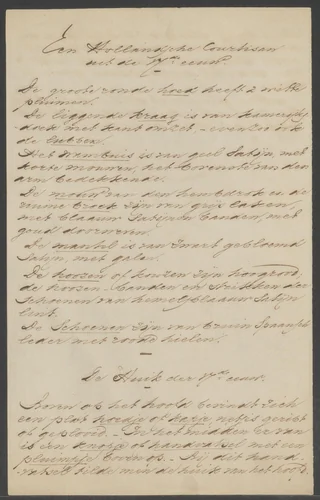 Een Hollandsche Courtisan
uit de 17de eeuw.
De groote ronde hoed heeft 2 witte
pluimen.
De liggende kraag is van kamerijks
doek met kant omzet - evenzo ook
de lubben.
Het wambuis is van geel Satijn, met
korte mouwen, het bovenste van den
arm bedekkende.
De mouw van den hemdrok en de
ruime broek zijn van grijs laken,
met blaauw Satijnen banden, met
goud doorweven.
De mantel is van zwart gebloemd
Satijn, met galon.
De hoozen of kousen zijn hoogrood,
de hoozen-banden en strikken der
schoenen van hemelsblaauw Satijn
lint.
De Schoenen zijn van bruin Spaansch
leder met roode hielen.
De Huik der 17de eeuw.
Boven op het hoofd bevindt zich
een plat hoedje of kapje netjes gerist
of geplooid - In het midden ervan
is een knopje of handvatsel met een
pluimpje boven op - Bij dit hand
vatsel tilde men de huik van het hoofd